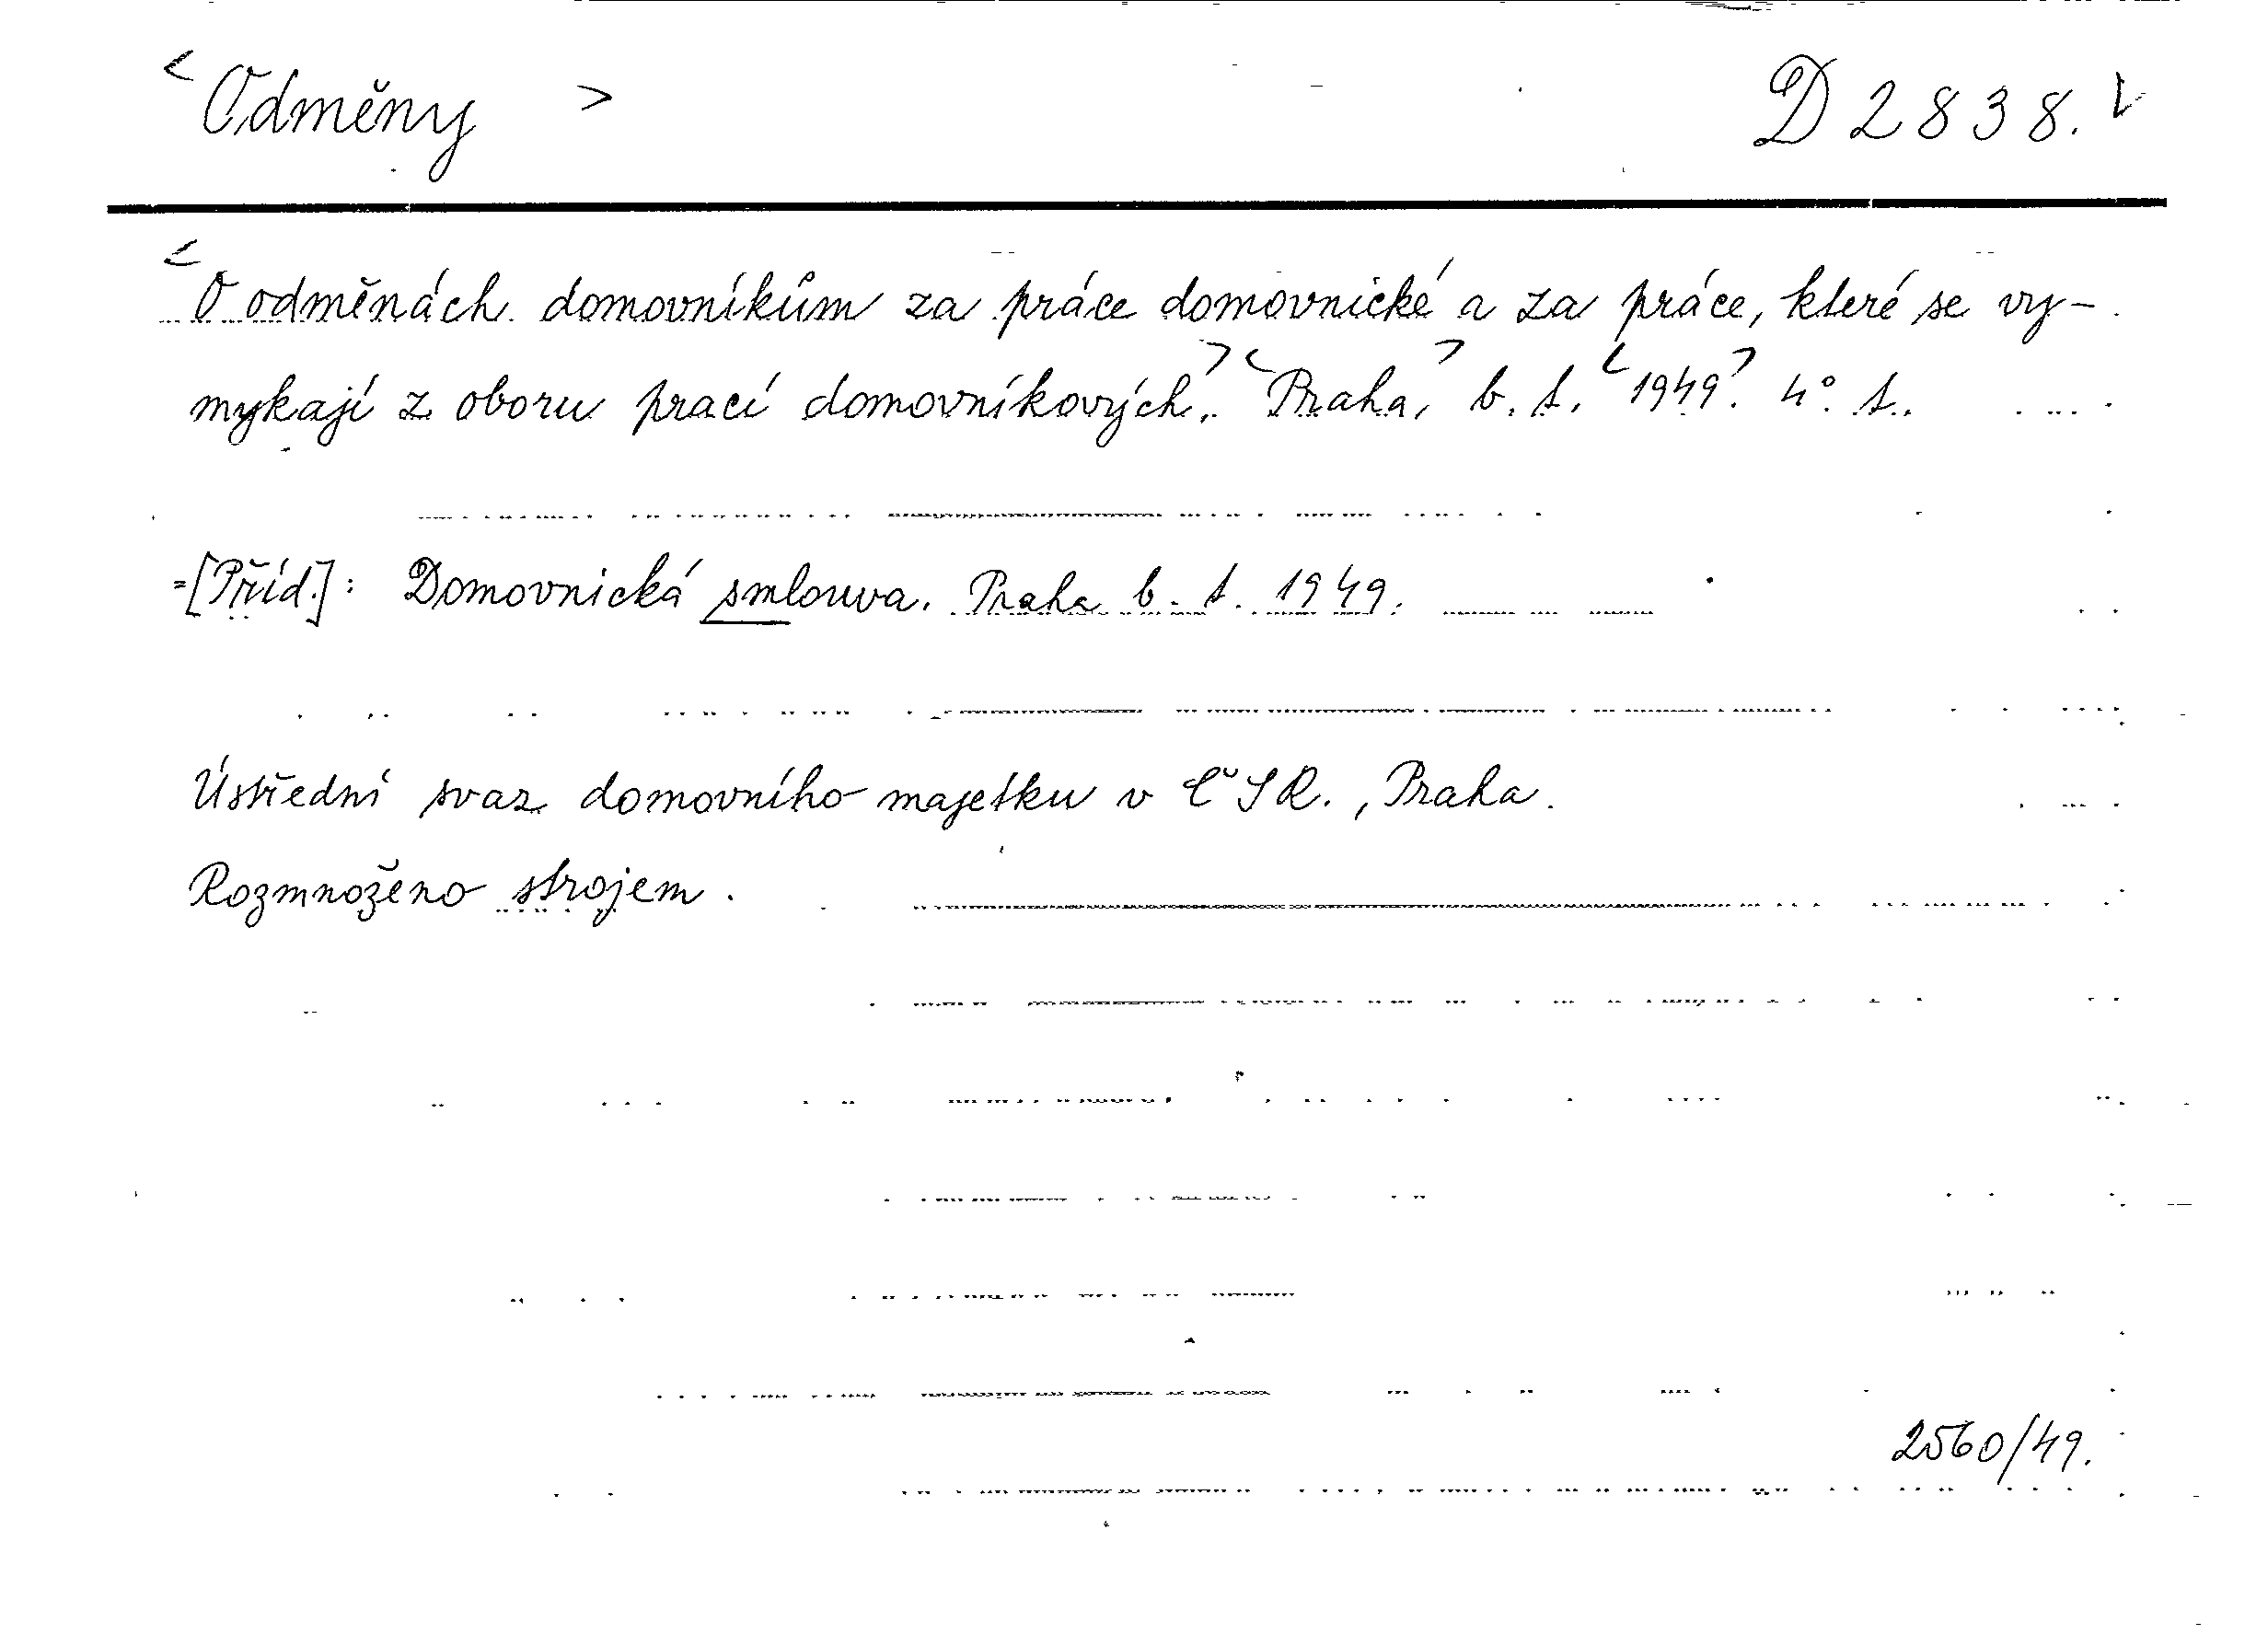 <Odměny> D 2838. V
<O odměnách domovníkům za práce domovnické a za práce, které se vy-
mykají z oboru prací domovníkových.> <Praha,> b. t. <1949.> 4° 1.
=[Příd.]: Domovnická smlouva. Praha b. t. 1949.
Ústřední svaz domovního majetku v ČSR., Praha.
Rozmnoženo strojem.
2560/49.